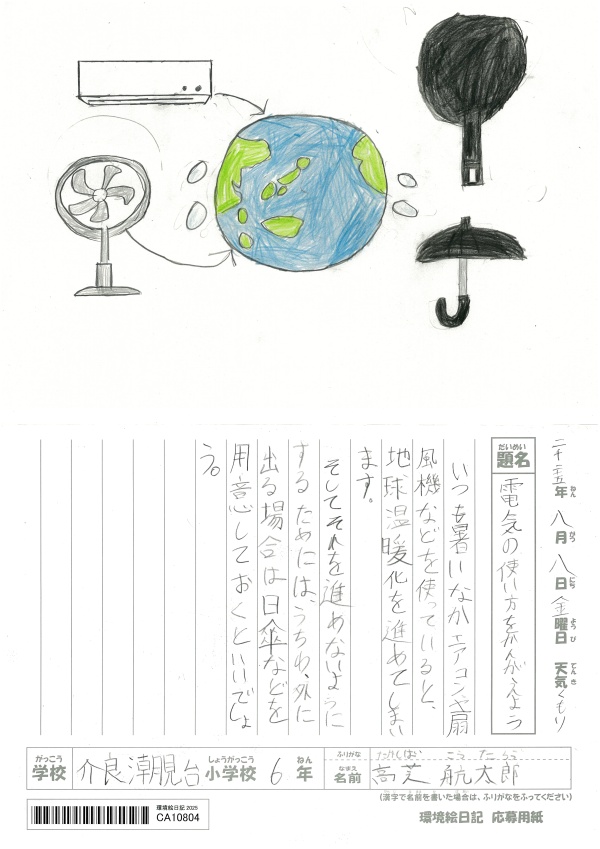 二千二五年八月八日金曜日 天気くもり
ねん がつ にち ようび てんき
だいめい
題名
電気の使い方をかんがえよう
いつも暑いなかエアコンや扇
風機などを使っていると、
地球温暖化を進めてしまい
ます。
そしてそれを進めないように
するためには、うちわ、外に
出る場合は日傘などを
用意しておくといいでしょ
う。
がっこう しょうがっこう ねん
学校 介良潮見台小学校 6年
ふりがな たかしば こうたろう
なまえ
名前 高芝 航太郎
(漢字で名前を書いた場合は、ふりがなをふってください)
環境絵日記 2025
CA10804
環境絵日記 応募用紙